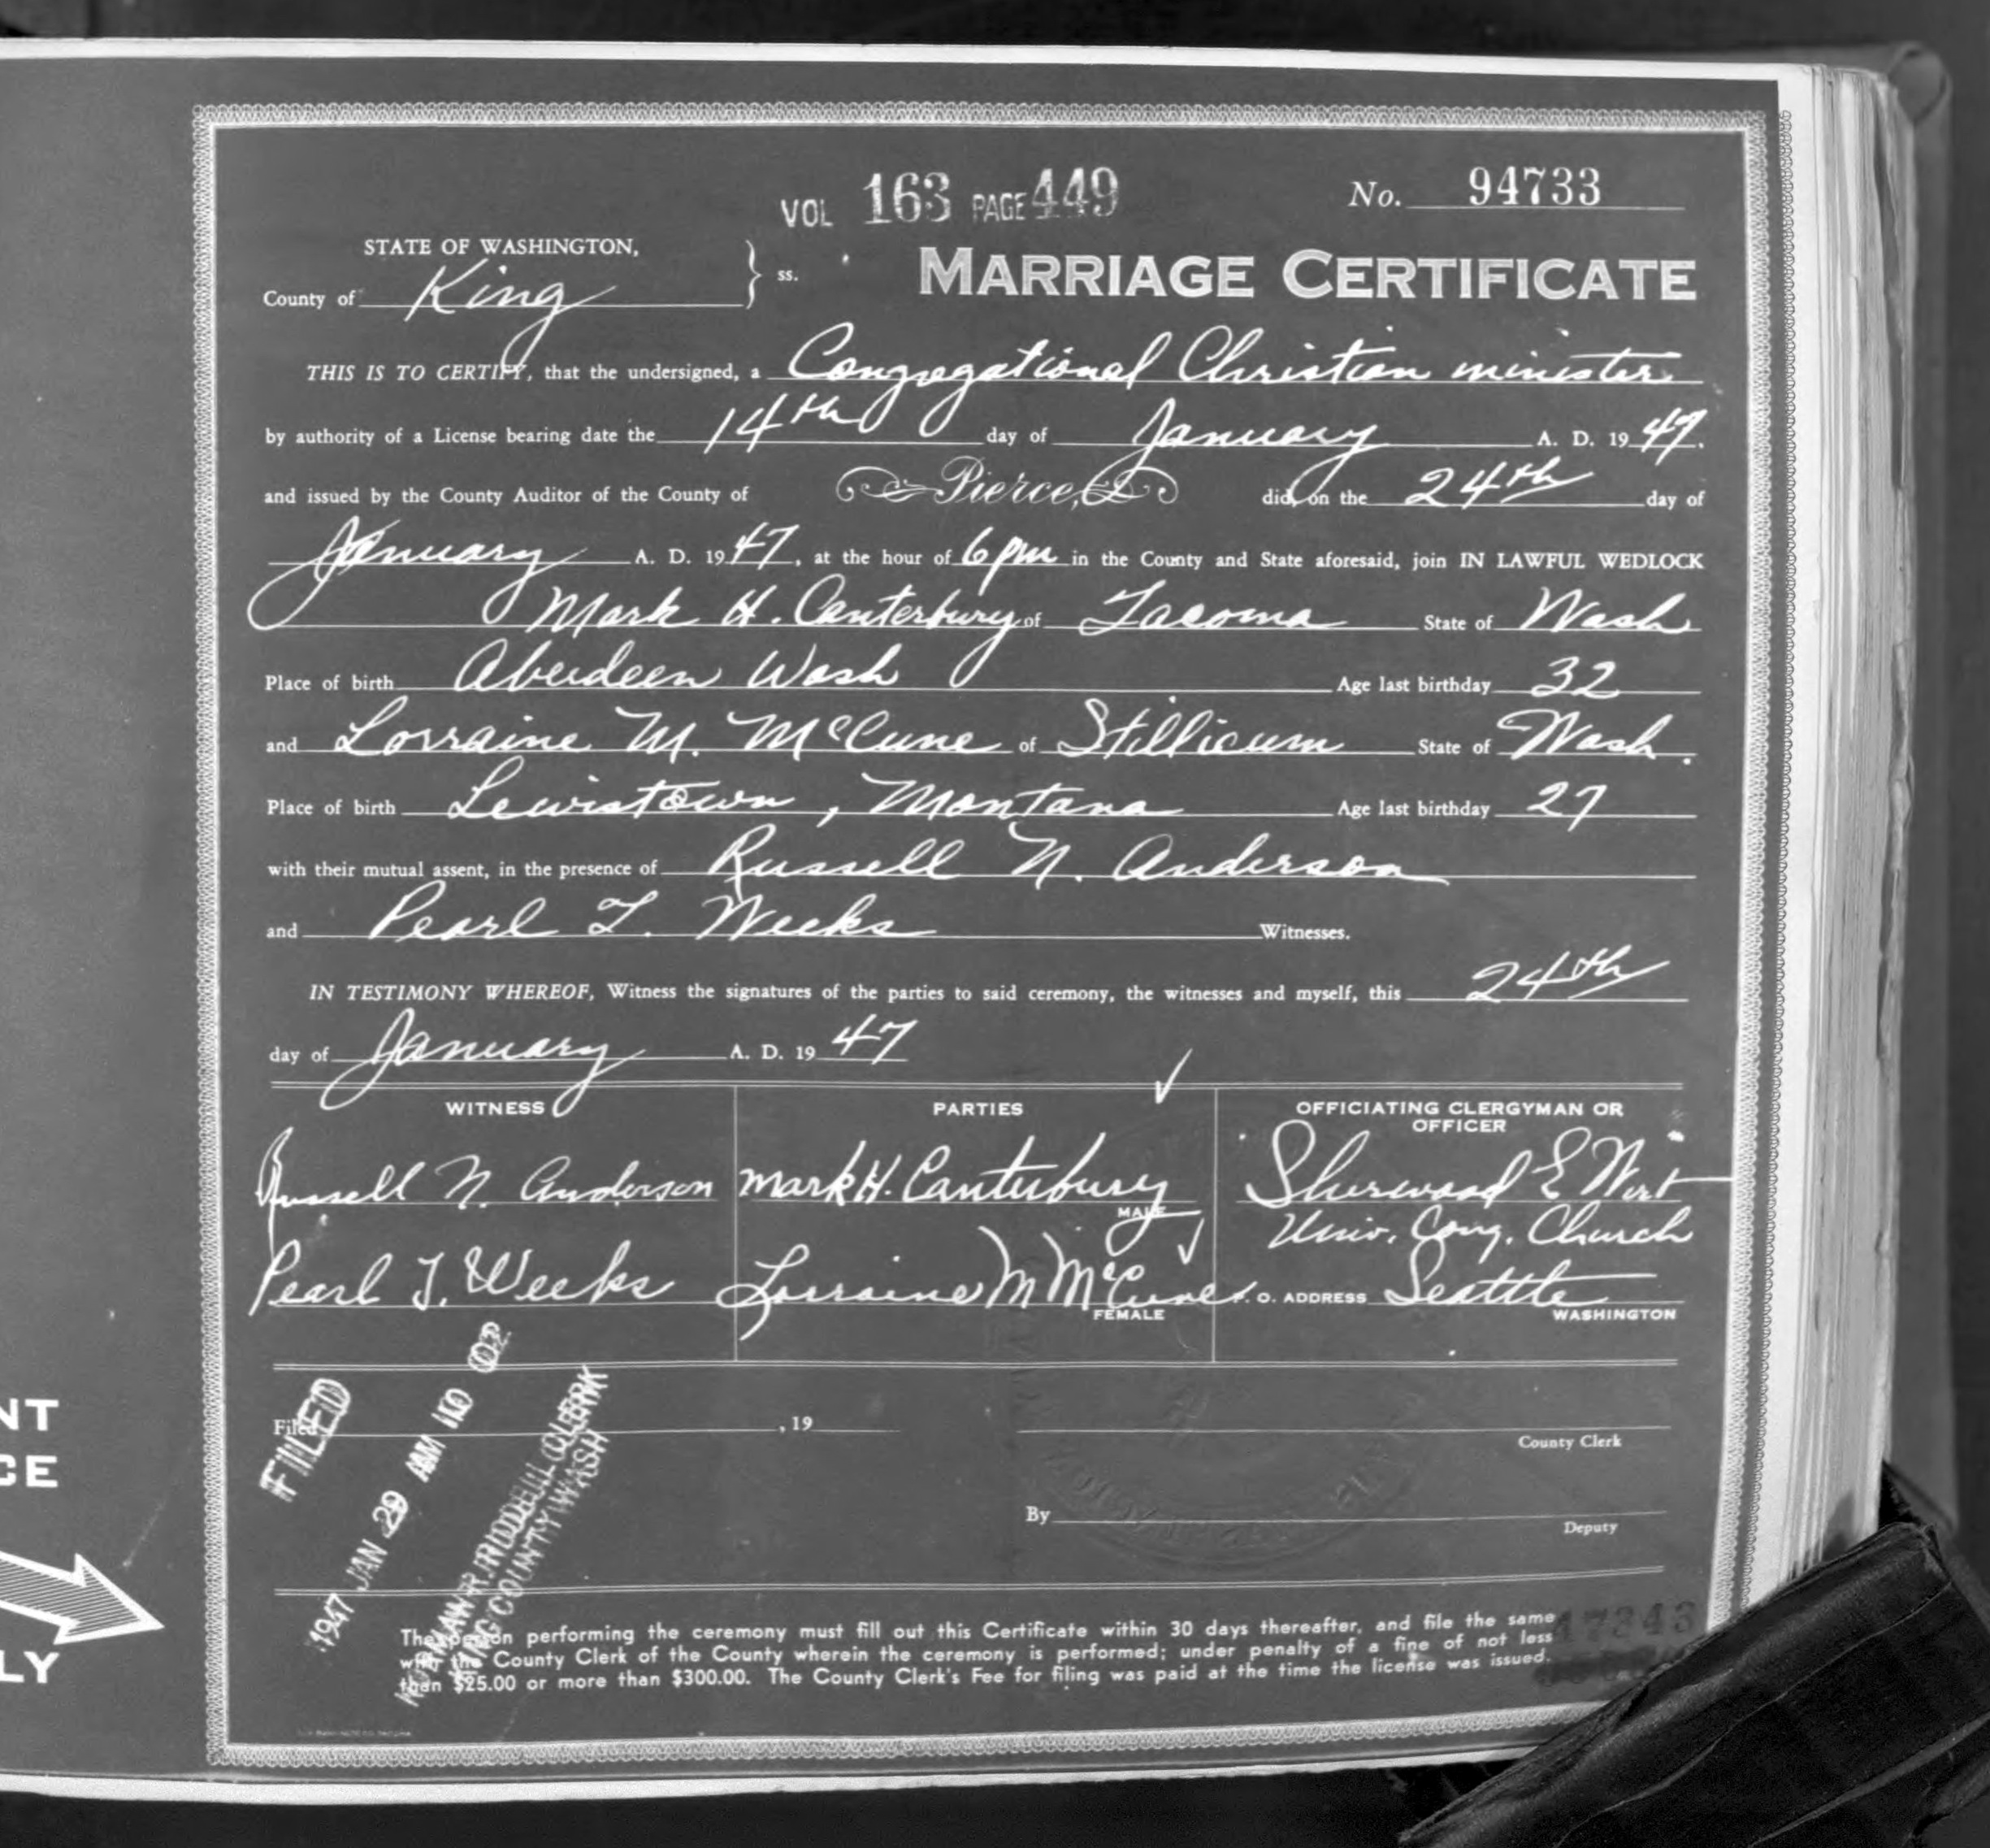 VOL 163 PAGE 449
No. 94733
STATE OF WASHINGTON,
County of King } ss.
MARRIAGE CERTIFICATE
THIS IS TO CERTIFY, that the undersigned, a Congregational Christian minister
by authority of a License bearing date the 14th day of January A. D. 19 47.
and issued by the County Auditor of the County of Pierce, did, on the 24th day of
January A. D. 19 47, at the hour of 6 pm in the County and State aforesaid, join IN LAWFUL WEDLOCK
Mark H. Canterbury of Tacoma State of Wash
Place of birth Aberdeen Wash Age last birthday 32
and Lorraine M. McCune of Stillicum State of Wash.
Place of birth Lewistown, Montana Age last birthday 27
with their mutual assent, in the presence of Russell N. Anderson
and Pearl T. Weeks Witnesses.
IN TESTIMONY WHEREOF, Witness the signatures of the parties to said ceremony, the witnesses and myself, this 24th
day of January A. D. 19 47
WITNESS
Russell N. Anderson
Pearl T. Weeks
PARTIES
Mark H. Canterbury
MALE
Lorraine M McCune
FEMALE
OFFICIATING CLERGYMAN OR
OFFICER
Sherwood E Wirt
Univ. Cong. Church
P. O. ADDRESS Seattle
WASHINGTON
Filed , 19
County Clerk
By
Deputy
FILED
1947 JAN 29 AM 10 02
RIDDELL CLERK
KING COUNTY WASH
NT
CE
LY
The person performing the ceremony must fill out this Certificate within 30 days thereafter, and file the same
with the County Clerk of the County wherein the ceremony is performed; under penalty of a fine of not less
than $25.00 or more than $300.00. The County Clerk's Fee for filing was paid at the time the license was issued.
47343